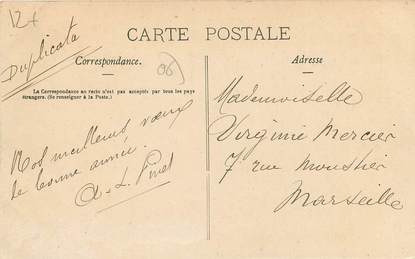 12+
Duplicata
CARTE POSTALE
Correspondance.
06
Adresse
La Correspondance au recto n'est pas acceptée par tous les pays
étrangers. (Se renseigner à la Poste.)
Mademoiselle
Virginie Mercier
7 rue Moustier
Marseille
Nos meilleurs vœux
de bonne année.
A. L. Pinet